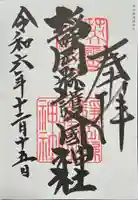 奉拝
静岡縣護國神社
令和六年十二月十五日